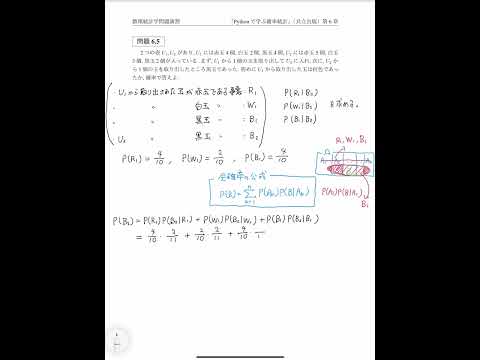 数理統計学問題演習 「Pythonで学ぶ確率統計」(共立出版) 第6章
問題 6.5
2つの壺 U₁, U₂ があり, U₁ には赤玉4個, 白玉2個, 黒玉4個, U₂ には赤玉5個, 白玉
3個, 黒玉2個が入っている. まず, U₁ から1個の玉を取り出して U₂ に入れ, 次に, U₂ か
ら1個の玉を取り出したところ黒玉であった. 初めに U₁ から取り出した玉は何色であっ
たか, 確率で答えよ.
U₁から取り出された玉が赤玉である事象・R₁ P(R₁|B₂)
〃 〃 白玉 〃 ・W₁ P(W₁|B₂) を求める.
〃 〃 黒玉 〃 ・B₁ P(B₁|B₂)
U₂ 〃 黒玉 〃 ・B₂
R₁ W₁ B₁
P(R₁) = 4/10 , P(W₁) = 2/10 , P(B₁) = 4/10
全確率の公式
P(B) = Σ P(Aₖ) P(B|Aₖ)
P(A₁)P(B|A₁)
P(B₂) = P(R₁) P(B₂|R₁) + P(W₁) P(B₂|W₁) + P(B₁) P(B₂|B₁)
= 4/10 · 2/11 + 2/10 · 2/11 + 4/10 ·